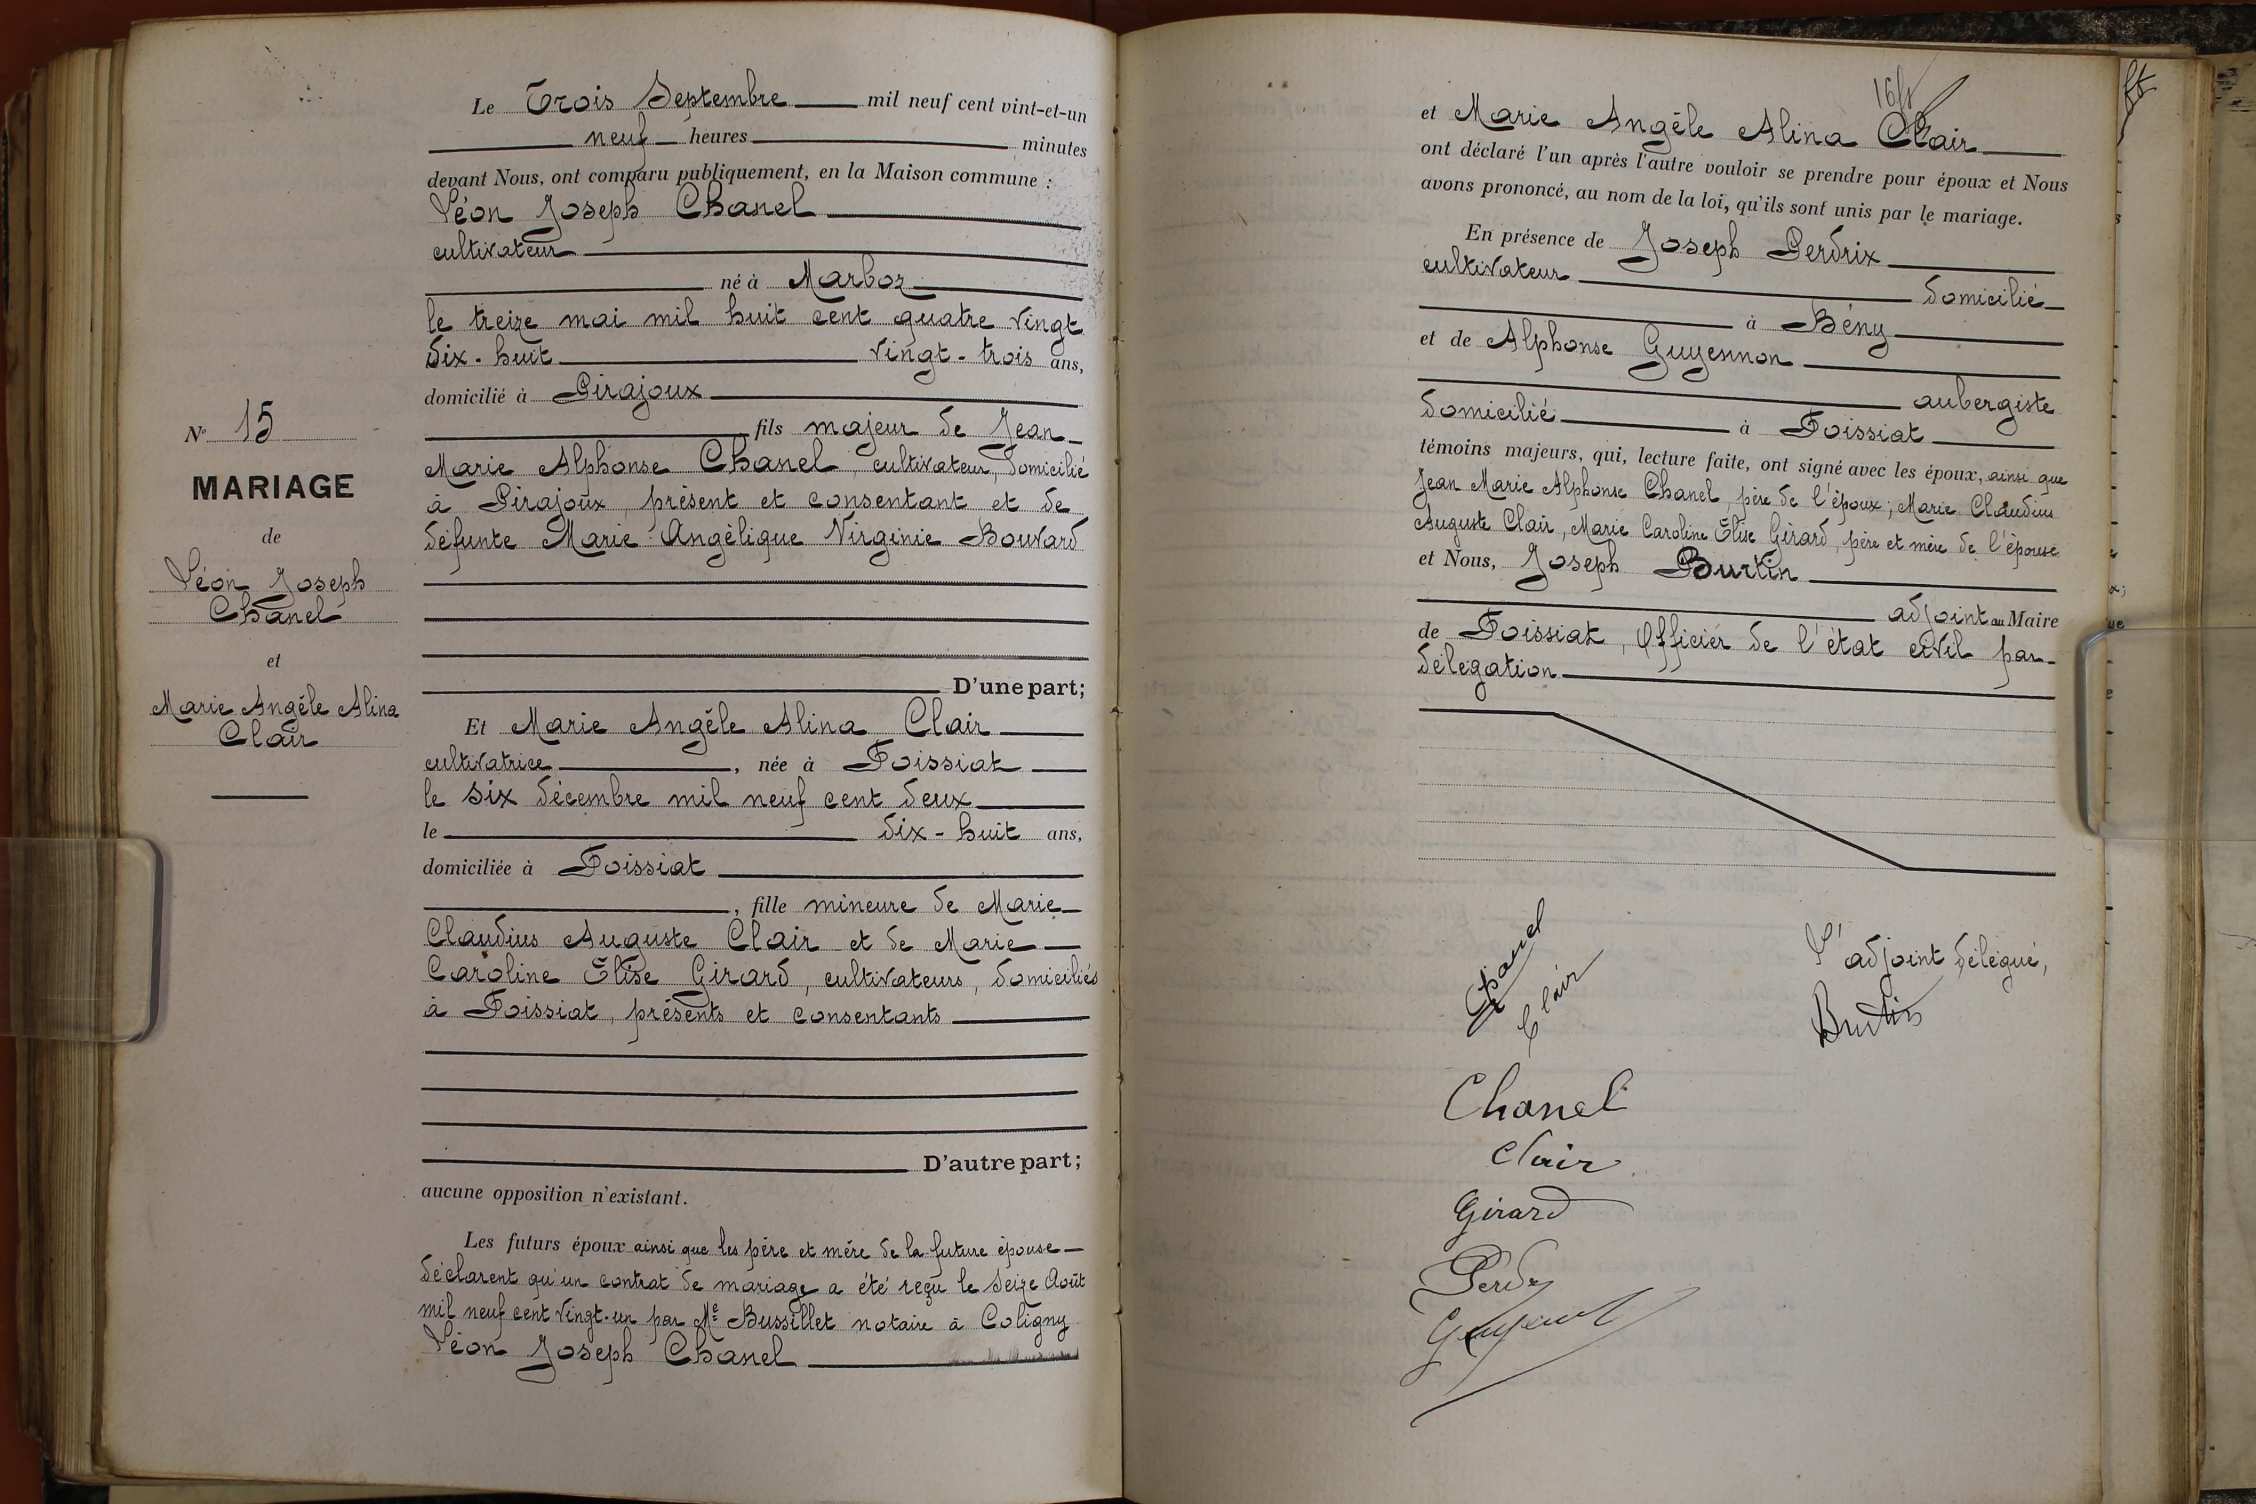 Nº 15
MARIAGE
de
Léon Joseph
Chanel
et
Marie Angèle Alina
Clair
Le Trois Septembre mil neuf cent vint-et-un
neuf heures minutes
devant Nous, ont comparu publiquement, en la Maison commune :
Léon Joseph Chanel
cultivateur
né à Marboz
le treize mai mil huit cent quatre vingt
dix-huit vingt-trois ans,
domicilié à Pirajoux
fils majeur de Jean
Marie Alphonse Chanel, cultivateur, domicilié
à Pirajoux, présent et consentant et de
défunte Marie Angèlique Virginie Bouvard
D'une part;
Et Marie Angèle Alina Clair
cultivatrice, née à Foissiat
le six décembre mil neuf cent deux
le dix-huit ans,
domiciliée à Foissiat
, fille mineure de Marie
Claudius Auguste Clair et de Marie
Caroline Élise Girard, cultivateurs, domiciliés
à Foissiat, présents et consentants
D'autre part;
aucune opposition n'existant.
Les futurs époux ainsi que les père et mère de la future épouse
déclarent qu'un contrat de mariage a été reçu le seize Août
mil neuf cent vingt-un par Me Bussillet notaire à Coligny
Léon Joseph Chanel
16
et Marie Angèle Alina Clair
ont déclaré l'un après l'autre vouloir se prendre pour époux et Nous
avons prononcé, au nom de la loi, qu'ils sont unis par le mariage.
En présence de Joseph Perdrix
cultivateur domicilié
à Bény
et de Alphonse Guyennon
aubergiste
domicilié à Foissiat
témoins majeurs, qui, lecture faite, ont signé avec les époux, ainsi que
Jean Marie Alphonse Chanel, père de l'époux; Marie Claudius
Auguste Clair, Marie Caroline Élise Girard, père et mère de l'épouse
et Nous, Joseph Burtin
adjoint au Maire
de Foissiat, Officier de l'état civil par
délégation
Chanel
Clair
L'adjoint délégué,
Burtin
Chanel
Clair
Girard